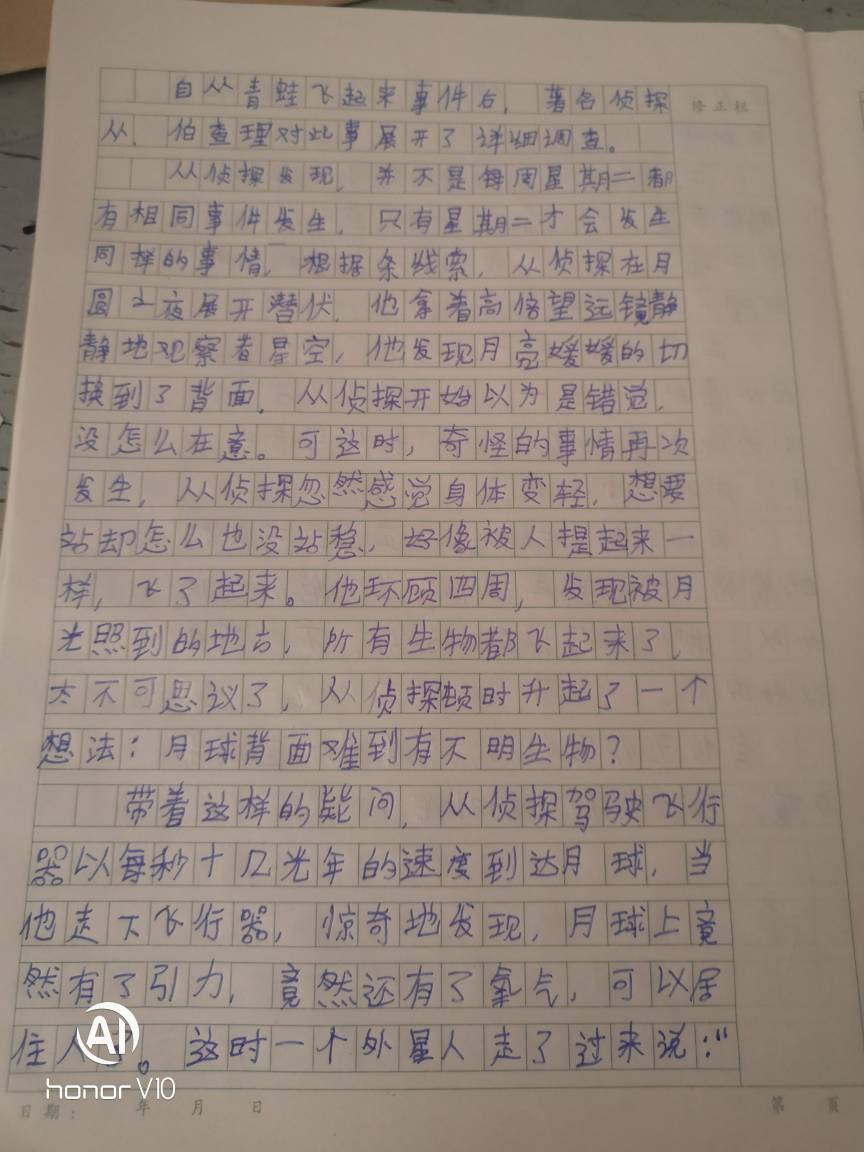 自从青蛙飞起来事件后，著名侦探
从．伯查理对此事展开了详细调查。
修正栏
从侦探发现，并不是每周星期二都
有相同事件发生，只有星期二才会发生
同样的事情，根据条线索，从侦探在月
圆之夜展开潜伏，他拿着高倍望远镜静
静地观察着星空，他发现月亮媛媛的切
换到了背面，从侦探开始以为是错觉，
没怎么在意。可这时，奇怪的事情再次
发生，从侦探忽然感觉身体变轻，想要
站却怎么也没站稳，好像被人提起来一
样，飞了起来。他环顾四周，发现被月
光照到的地方，所有生物都飞起来了，
太不可思议了，从侦探顿时升起了一个
想法：月球背面难到有不明生物？
带着这样的疑问，从侦探驾驶飞行
器以每秒十几光年的速度到达月球，当
他走下飞行器，惊奇地发现，月球上竟
然有了引力，竟然还有了氧气，可以居
住人了。这时一个外星人走了过来说：“
AI
honor V10
日期： 年 月 日
第 页